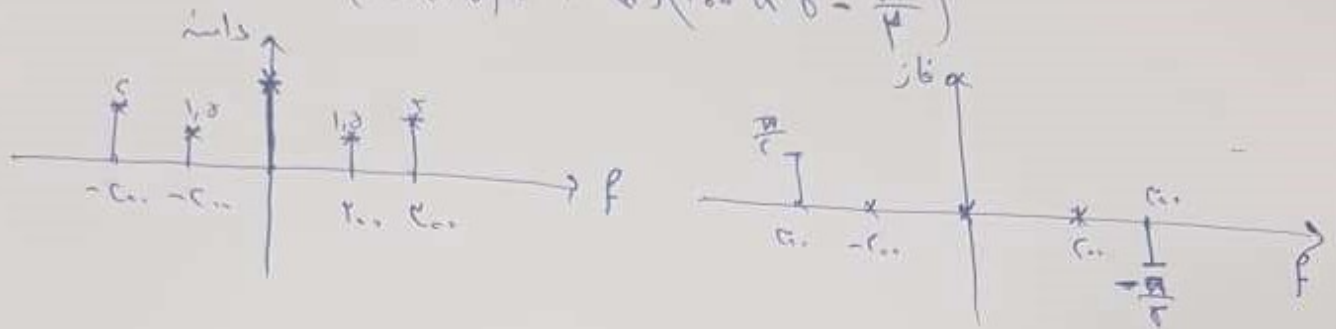 دامنه
فاز
۲
۱,۵
۱,۵
۲
-۳۰۰
-۲۰۰
۲۰۰
۳۰۰
f
π/۲
۳۰۰
-۲۰۰
۲۰۰
۳۰۰
-π/۲
f